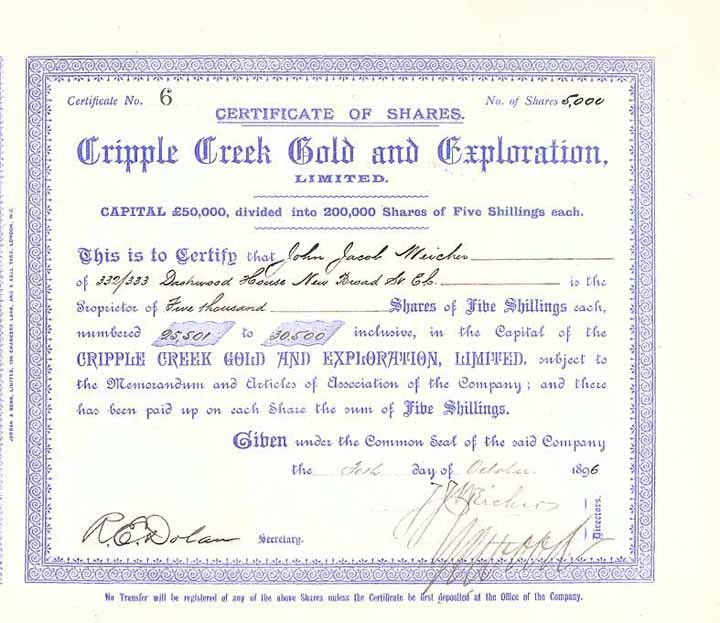 Certificate No. 6
No. of Shares 5,000
CERTIFICATE OF SHARES.
Cripple Creek Gold and Exploration,
LIMITED.
CAPITAL £50,000, divided into 200,000 Shares of Five Shillings each.
This is to Certify that John Jacob Weicher
of 332/333 Dashwood House New Broad St E.C. is the
Proprietor of Five thousand Shares of Five Shillings each,
numbered 25,501 to 30,500 inclusive, in the Capital of the
CRIPPLE CREEK GOLD AND EXPLORATION, LIMITED, subject to
the Memorandum and Articles of Association of the Company; and there
has been paid up on each Share the sum of Five Shillings.
Given under the Common Seal of the said Company
the day of October 1896
J J Weicher
Directors.
R. E. Dolan Secretary.
No Transfer will be registered of any of the above Shares unless the Certificate be first deposited at the Office of the Company.
JORDAN & SONS, LIMITED, 120 CHANCERY LANE, AND 8 BELL YARD, LONDON, W.C.